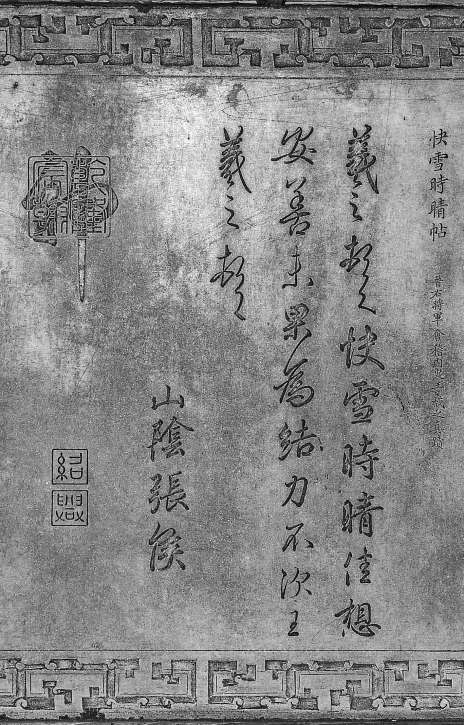 快雪時晴帖
晉右將軍會稽內史王羲之
羲之頓首快雪時晴佳想
安善未果為結力不次王
羲之頓首
山陰張侯
紹興